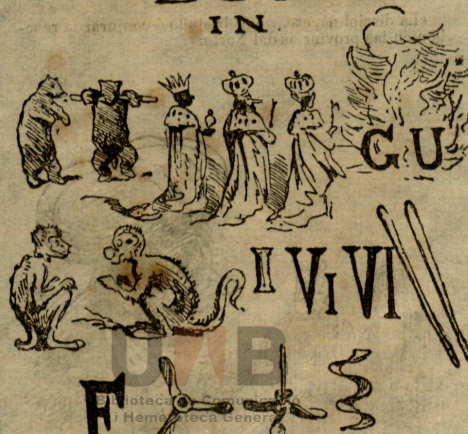 IN
GU
I VI VI
F
UAB
Biblioteca de Comunicació
i Hemeroteca General